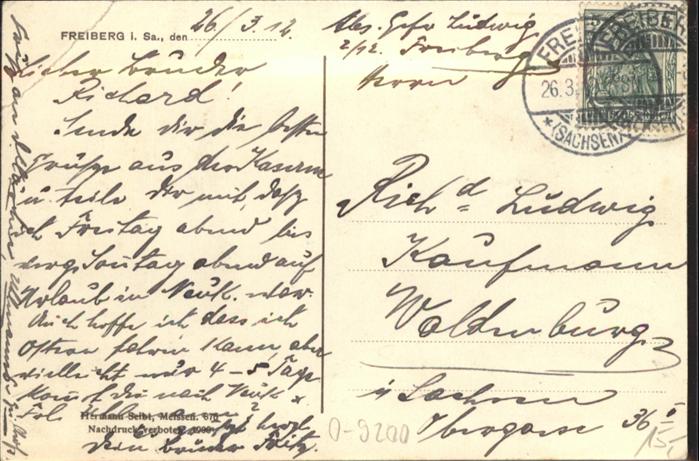 FREIBERG i. Sa., den 26/3.12.
Lieber Bruder
Richard!
Sende dir die besten
Grüße aus der Kaserne
u. teile dir mit, daß
ich Freitag abend bis
Sontag abend auf
Urlaub in Neuk. war.
Auch hoffe ich dass ich
Ostern fahren kann, aber
vielleicht nur 4-5 Tage
Komst du nach Neuk
Es grüßt herzl.
dein Bruder Fritz.
Hermann Seibt, Meissen.
Nachdruck verboten. 1909.
Abs. Gefr Ludwig
Freiberg
FREIBERG
26.3.
*(SACHSEN)
Rich d Ludwig
Kaufmann
Waldenburg
i/Sachsen
Obergasse 36
0-9200
15,